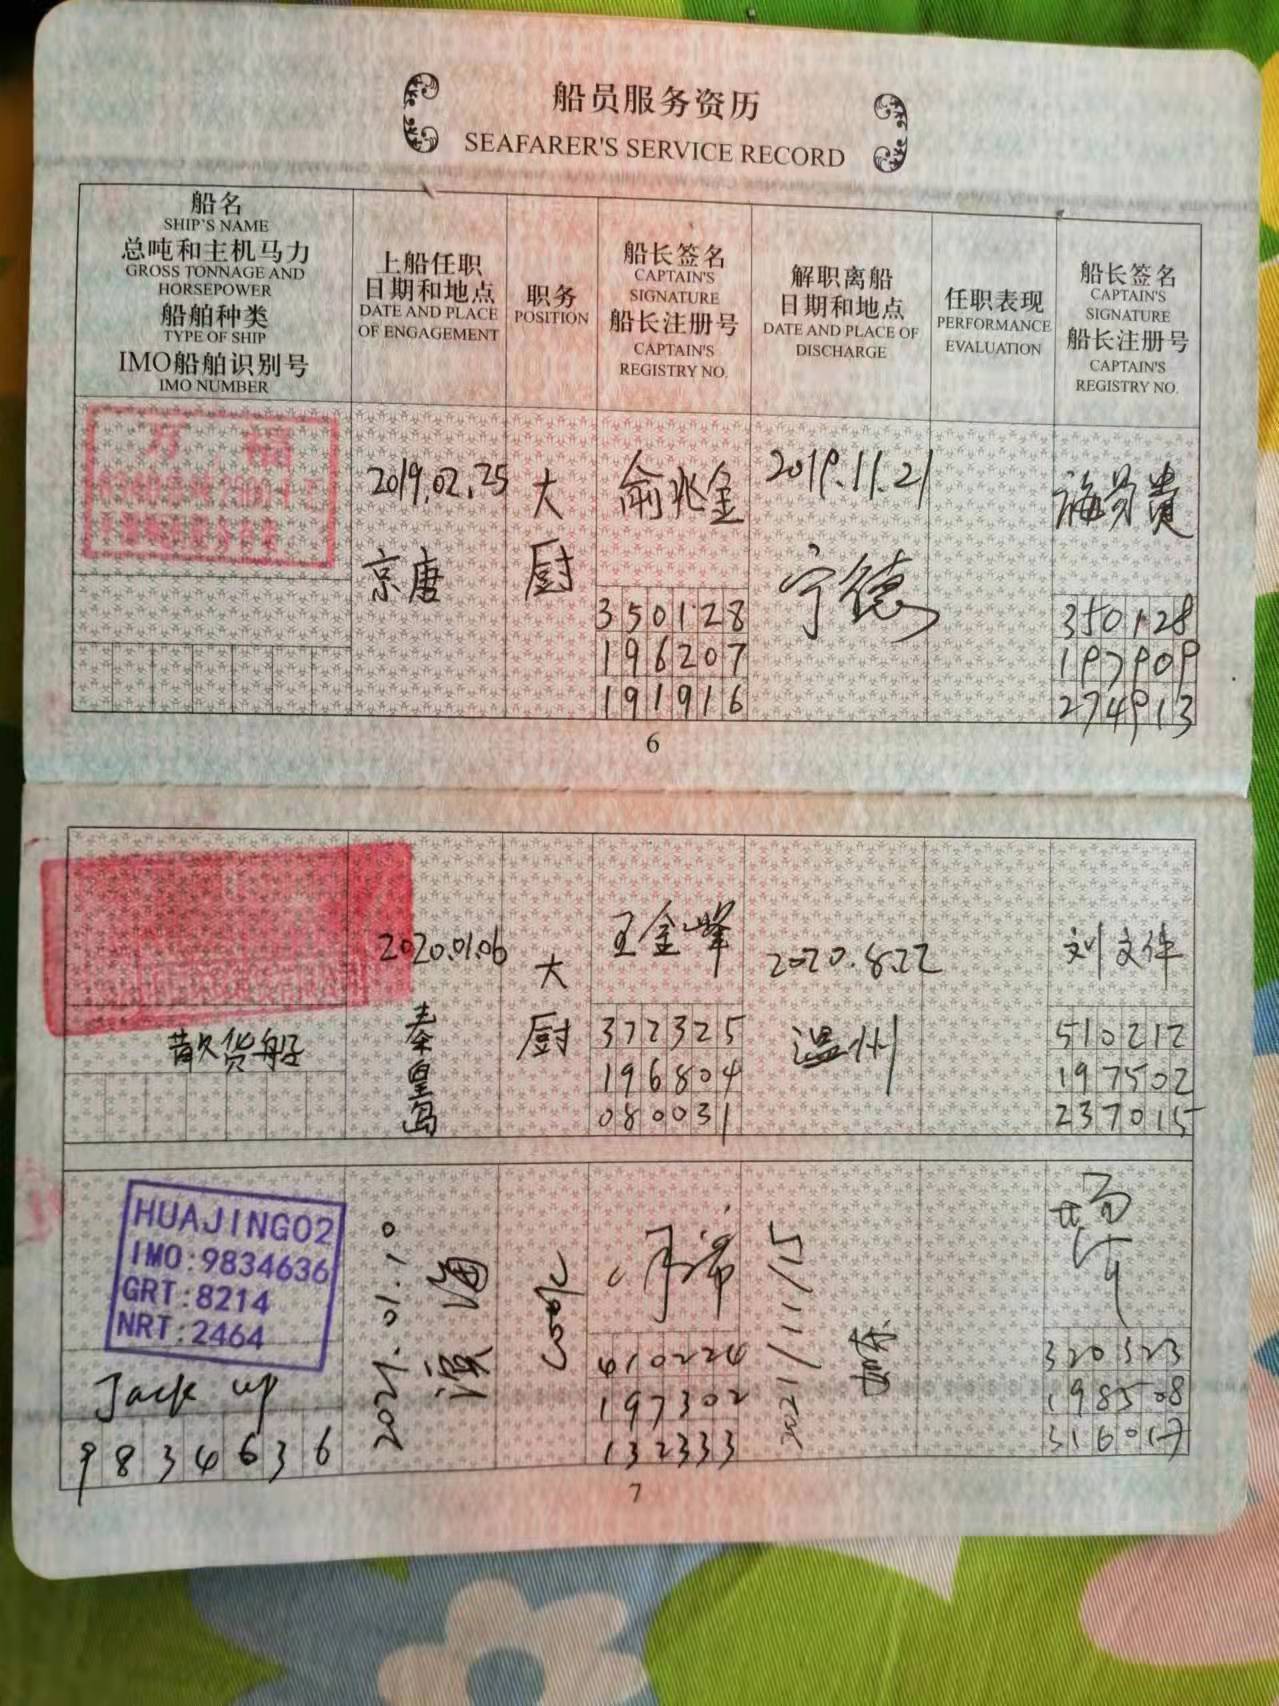 船员服务资历
SEAFARER'S SERVICE RECORD
船名
SHIP'S NAME
总吨和主机马力
GROSS TONNAGE AND
HORSEPOWER
船舶种类
TYPE OF SHIP
IMO船舶识别号
IMO NUMBER
上船任职
日期和地点
DATE AND PLACE
OF ENGAGEMENT
职务
POSITION
船长签名
CAPTAIN'S
SIGNATURE
船长注册号
CAPTAIN'S
REGISTRY NO.
解职离船
日期和地点
DATE AND PLACE OF
DISCHARGE
任职表现
PERFORMANCE
EVALUATION
船长签名
CAPTAIN'S
SIGNATURE
船长注册号
CAPTAIN'S
REGISTRY NO.
2019.02.25
京唐
大
厨
俞兆金
350128
196207
191916
2019.11.21
宁德
350128
197909
274913
6
散货船
2020.01.06
秦皇岛
大
厨
王金峰
372325
196804
080031
2020.8.22
温州
刘文
510212
197502
237015
HUAJING02
IMO:9834636
GRT:8214
NRT:2464
Jack up
9834636
2021.01.10
海
cook
410224
197302
132333
2021/11/15
320323
198508
316017
7